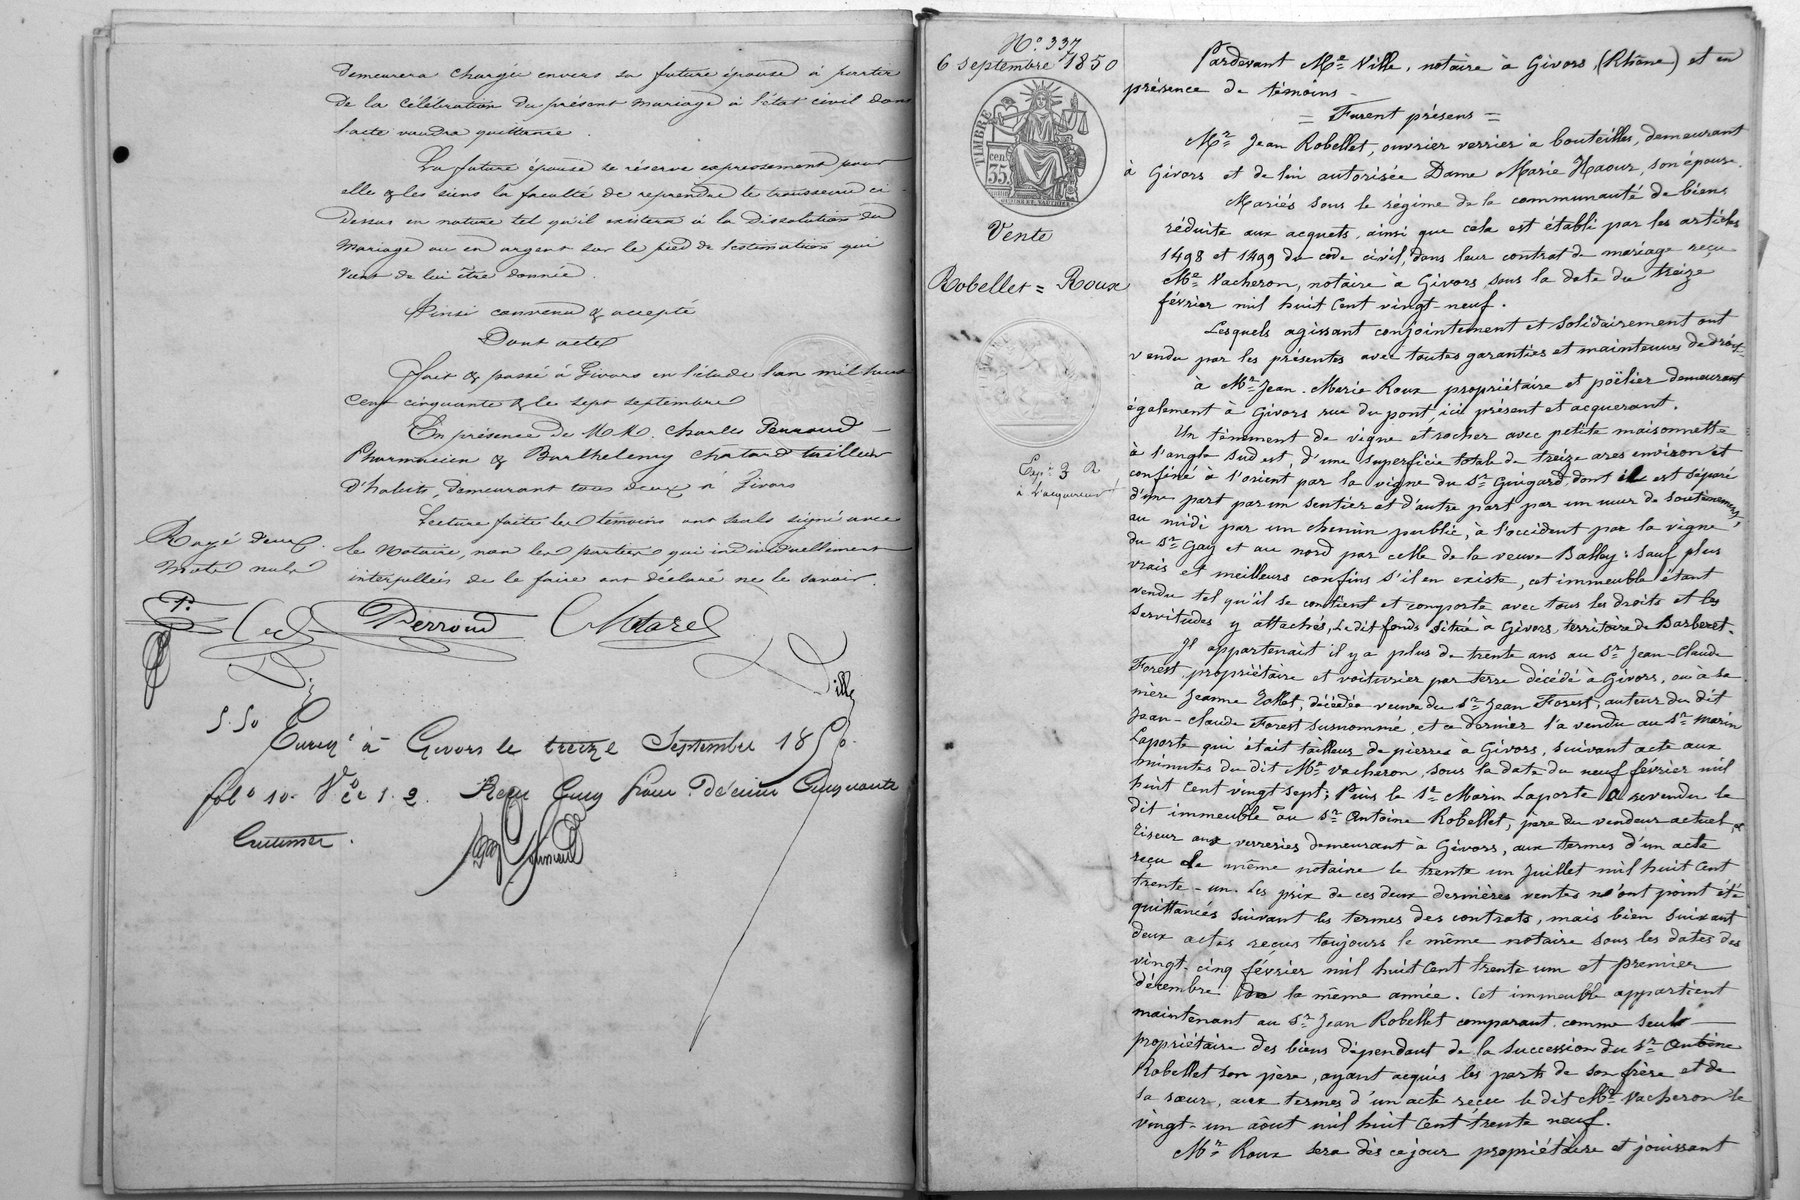 demeurera chargée envers sa future épouse à partir
de la célébration du présent mariage à l'état civil dont
l'acte vaudra quittance.
La future épouse se réserve expressement pour
elle & les siens la faculté de reprendre le trousseau ci-
dessus en nature tel qu'il existera à la dissolution du
mariage ou en argent sur le pied de l'estimation qui
vient de lui être donnée.
Ainsi convenu & accepté
Dont acte
Fait & passé à Givors en l'étude l'an mil huit
cent cinquante & le sept septembre
En présence de MM. Charles Perroud
Pharmacien & Barthelemy Chatard tailleur
d'habits, demeurant tous deux à Givors
Lecture faite les témoins ont seuls signé avec
le Notaire, non les parties qui individuellement
interpellées de le faire ont déclaré ne le savoir.
Rayé deux
mots nuls
P.
Perroud
Ville
5.50
Enreg. à Givors le treize Septembre 1850.
fol. 10. Vo Ce 1. 2. Reçu Cinq francs décime Cinquante
Centimes.
No. 337
6 septembre 1850
TIMBRE
cen
35
Vente
Robellet = Roux
Exp. 3 R
à l'acquereur
Pardevant Me Ville, notaire à Givors, (Rhône) et en
présence de témoins -
= Furent présens =
Mr Jean Robellet, ouvrier verrier à bouteilles, demeurant
à Givors et de lui autorisée Dame Marie Haour, son épouse.
Mariés sous le régime de la communauté de biens
réduite aux acquets, ainsi que cela est établi par les articles
1498 et 1499 du code civil, dans leur contrat de mariage reçu
Me Vacheron, notaire à Givors, sous la date du treize
février mil huit cent vingt-neuf.
Lesquels agissant conjointement et solidairement ont
vendu par les présentes avec toutes garanties et maintenues de droit,
à Mr Jean-Marie Roux propriétaire et poëlier demeurant
également à Givors rue du pont ici présent et acquerant.
Un tènement de vigne et rocher avec petite maisonnette
à l'angle sud est, d'une superficie totale de treize ares environ et
confiné à l'orient par la vigne du Sr Guigard, dont il est séparé
d'une part par un sentier et d'autre part par un mur de soutènement,
au midi par un chemin public, à l'occident par la vigne
du Sr Gay et au nord par celle de la veuve Balley: sauf plus
vrais et meilleurs confins s'il en existe, cet immeuble étant
vendu tel qu'il se contient et comporte avec tous les droits et les
servitudes y attachés, ledit fonds situé à Givors, territoire de Barberet.
Il appartenait il y a plus de trente ans au Sr Jean-Claude
Forest, propriétaire et voiturier par terre décédé à Givors, ou à sa
mère Jeanne Zollet, décédée veuve du Sr Jean Forest, auteur du dit
Jean-Claude Forest susnommé, et ce dernier l'a vendu au Sr Marin
Laporte qui était tailleur de pierres à Givors, suivant acte aux
minutes du dit Me Vacheron, sous la date du neuf février mil
huit cent vingt sept; Puis le Sr Marin Laporte a revendu le
dit immeuble au Sr Antoine Robellet, père du vendeur actuel, et
tiseur aux verreries demeurant à Givors, aux termes d'un acte
reçu le même notaire le trente un juillet mil huit cent
trente-un. Les prix de ces deux dernières ventes n'ont point été
quittancés suivant les termes des contrats, mais bien suivant
deux actes reçus toujours le même notaire sous les dates des
vingt-cinq février mil huit cent trente un et premier
décembre de la même année. Cet immeuble appartient
maintenant au Sr Jean Robellet comparant comme seul
propriétaire des biens dépendant de la succession du Sr Antoine
Robellet son père, ayant acquis les parts de son frère et de
sa sœur, aux termes d'un acte reçu le dit Me Vacheron le
vingt-un août mil huit cent trente neuf.
Mr Roux sera dès ce jour propriétaire et jouissant